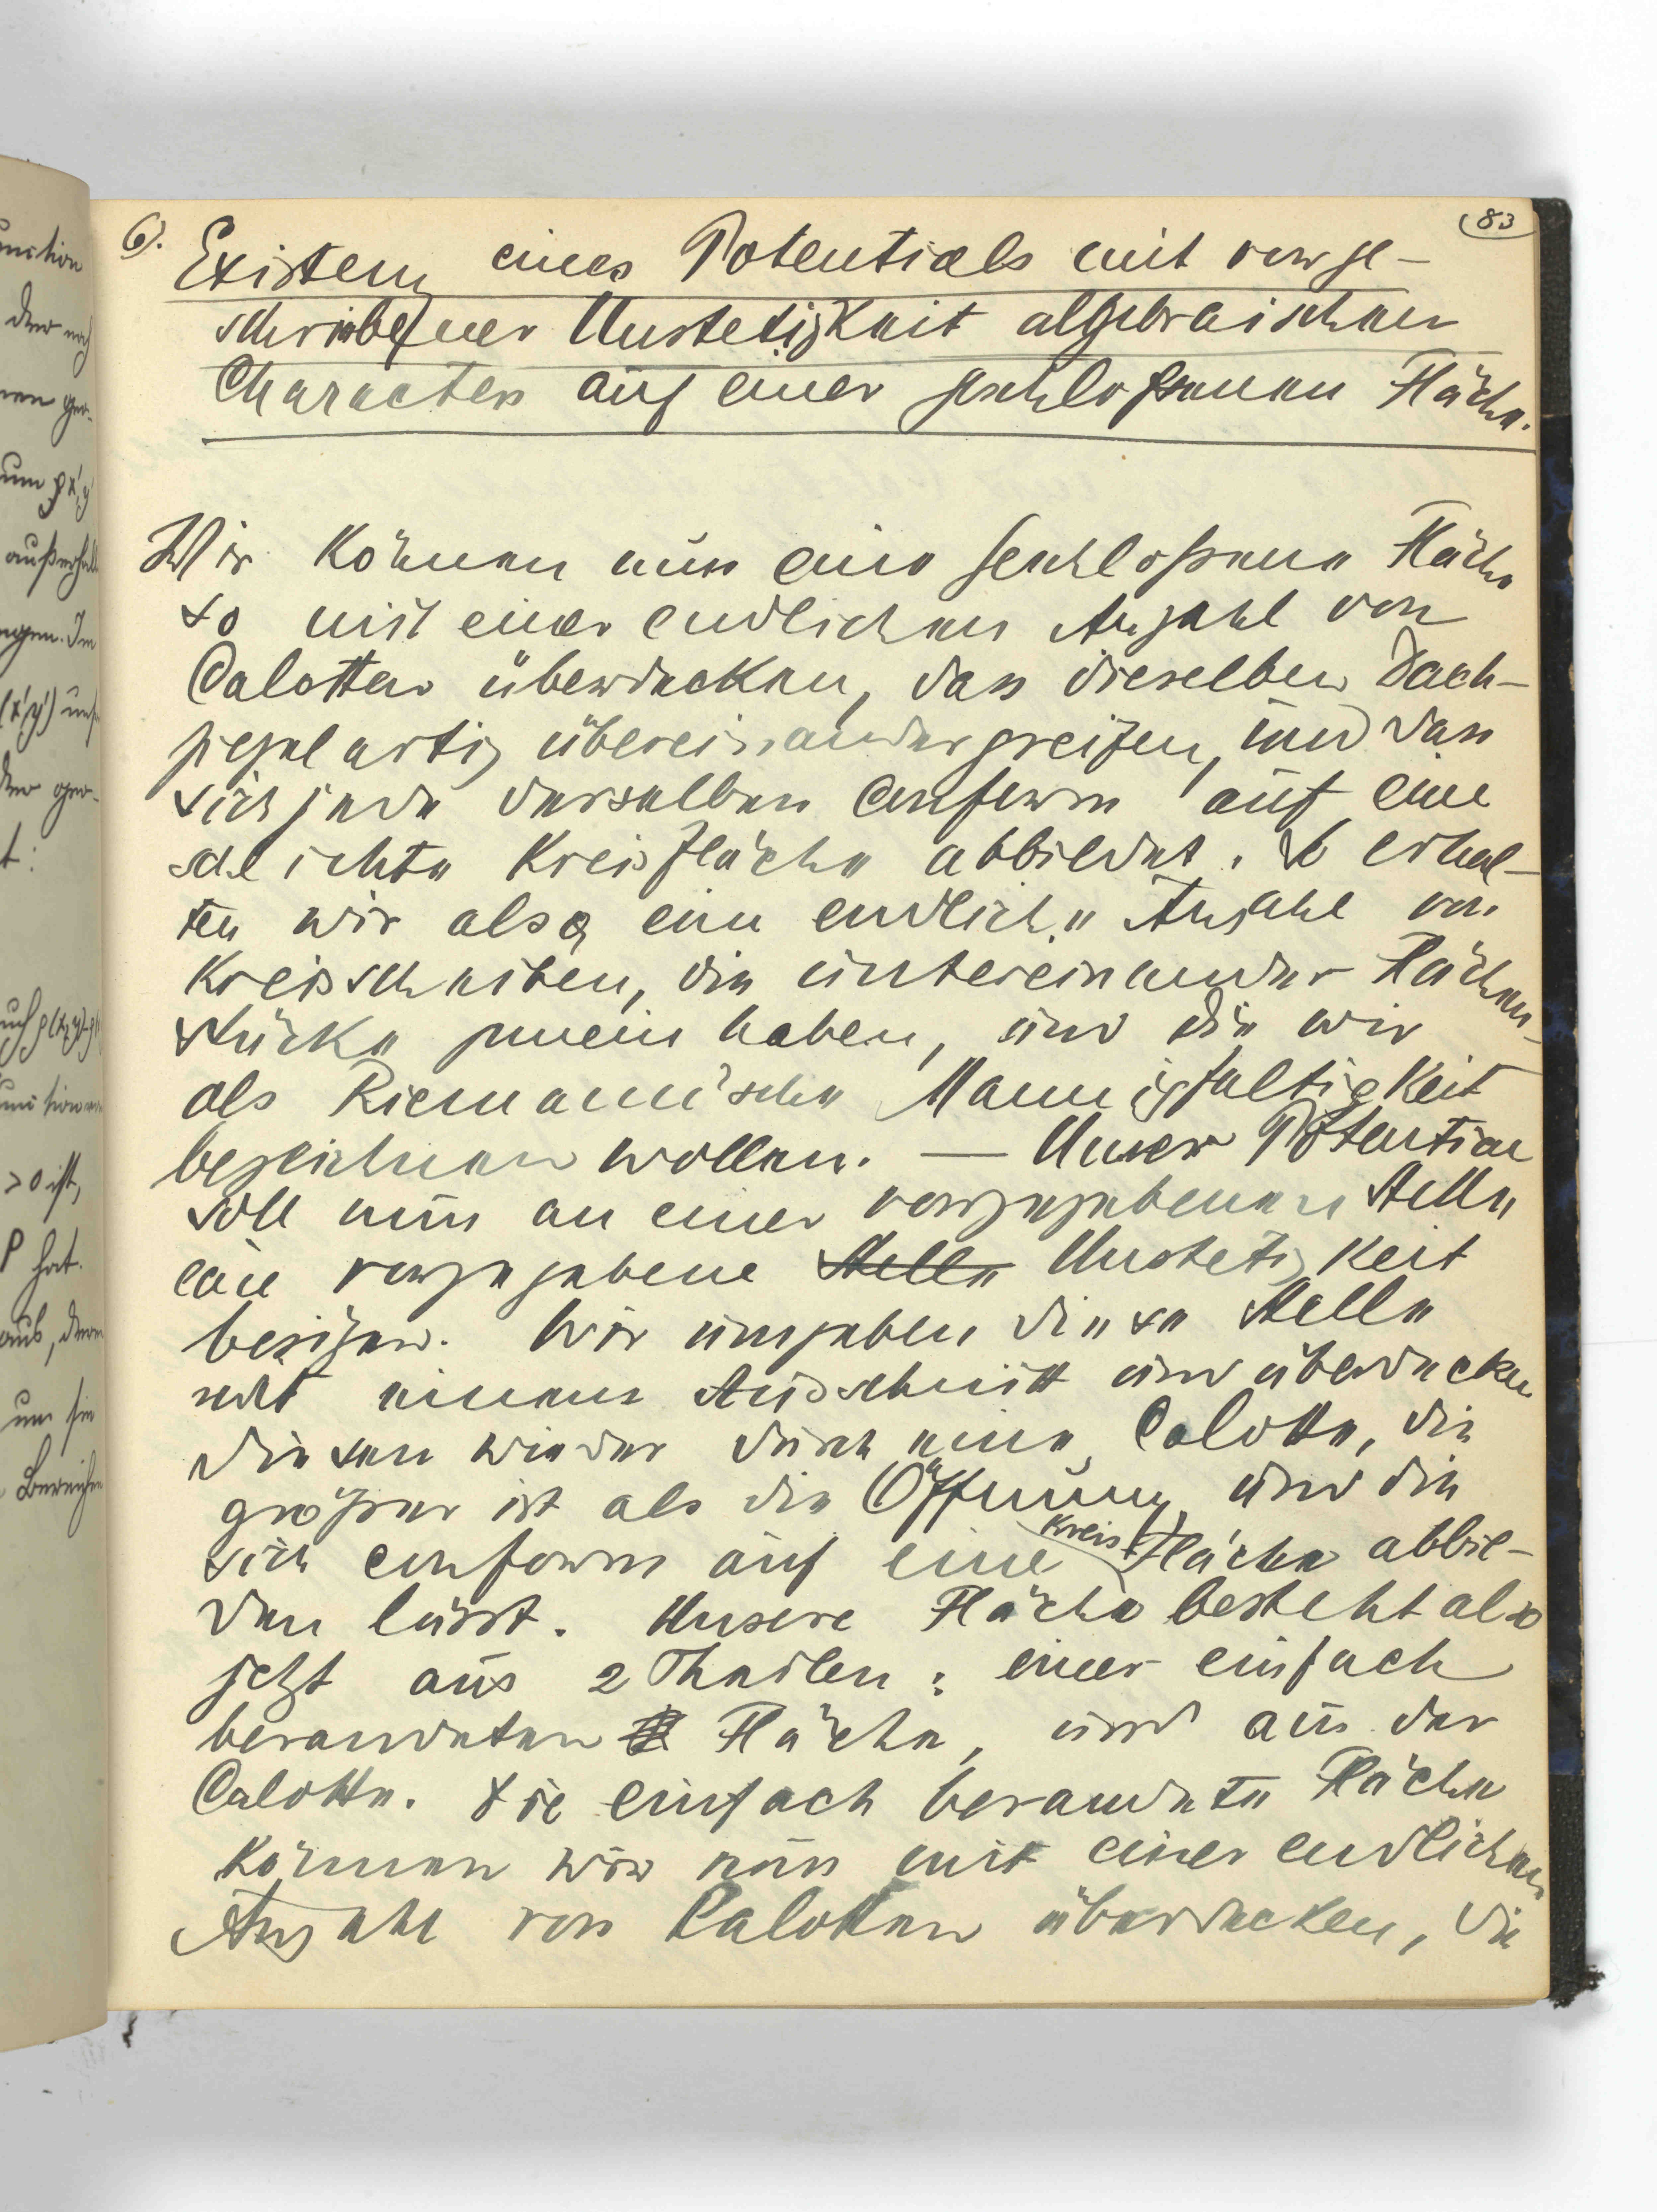 83
6). Existenz eines Potentials mit vorge-
schriebener Unstetigkeit algebraischen
Characters auf einer geschloßenen Fläche.
Wir können nun eine geschloßene Fläche
so mit einer endlichen Anzahl von
Calotten überdecken, dass dieselben dach-
ziegelartig übereinandergreifen, und dass
sich jede derselben conform auf eine
schlichte Kreisfläche abbildet. So erhal-
ten wir also eine endliche Anzahl von
Kreisscheiben, die untereinander Flächen-
stücke gemein haben, und die wir
als Riemann'sche Mannigfaltigkeit
bezeichnen wollen. — Unser Potential
soll nun an einer vorgegebenen Stelle
eine vorgegebene Stelle Unstetigkeit
besitzen. Wir umgeben diese Stelle
mit einem Ausschnitt und überdecken
diesen wieder durch eine Calotte, die
größer ist als die Öffnung, und die
sich conform auf eine Kreisfläche abbil-
den lässt. Unsere Fläche besteht also
jetzt aus 2 Theilen: einer einfach
berandeten Fläche, und aus der
Calotte. Die einfach berandete Fläche
können wir nun mit einer endlichen
Anzahl von Calotten überdecken, die